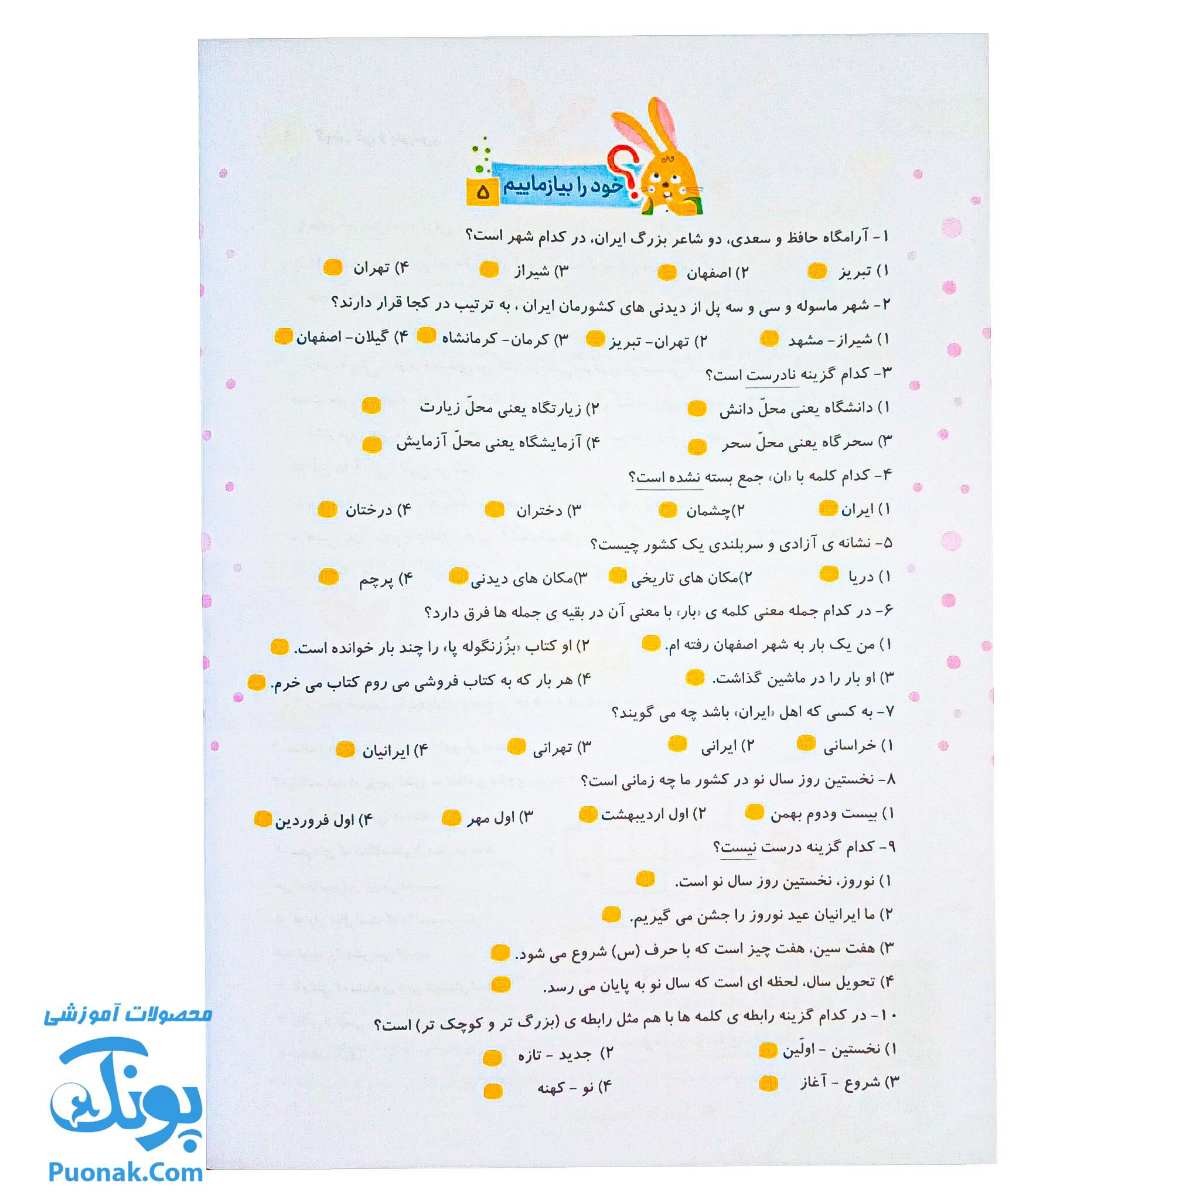 خود را بیازماییم
۵
۱- آرامگاه حافظ و سعدی، دو شاعر بزرگ ایران، در کدام شهر است؟
۱) تبریز ۲) اصفهان ۳) شیراز ۴) تهران
۲- شهر ماسوله و سی و سه پل از دیدنی های کشورمان ایران ، به ترتیب در کجا قرار دارند؟
۱) شیراز- مشهد ۲) تهران- تبریز ۳) کرمان- کرمانشاه ۴) گیلان- اصفهان
۳- کدام گزینه نادرست است؟
۱) دانشگاه یعنی محلّ دانش ۲) زیارتگاه یعنی محلّ زیارت
۳) سحرگاه یعنی محلّ سحر ۴) آزمایشگاه یعنی محلّ آزمایش
۴- کدام کلمه با «ان» جمع بسته نشده است؟
۱) ایران ۲)چشمان ۳) دختران ۴) درختان
۵- نشانه ی آزادی و سربلندی یک کشور چیست؟
۱) دریا ۲)مکان های تاریخی ۳)مکان های دیدنی ۴) پرچم
۶- در کدام جمله معنی کلمه ی «بار» با معنی آن در بقیه ی جمله ها فرق دارد؟
۱) من یک بار به شهر اصفهان رفته ام. ۲) او کتاب «بزُزنگوله پا» را چند بار خوانده است.
۳) او بار را در ماشین گذاشت. ۴) هر بار که به کتاب فروشی می روم کتاب می خرم.
۷- به کسی که اهل «ایران» باشد چه می گویند؟
۱) خراسانی ۲) ایرانی ۳) تهرانی ۴) ایرانیان
۸- نخستین روز سال نو در کشور ما چه زمانی است؟
۱) بیست ودوم بهمن ۲) اول اردیبهشت ۳) اول مهر ۴) اول فروردین
۹- کدام گزینه درست نیست؟
۱) نوروز، نخستین روز سال نو است.
۲) ما ایرانیان عید نوروز را جشن می گیریم.
۳) هفت سین، هفت چیز است که با حرف (س) شروع می شود.
۴) تحویل سال، لحظه ای است که سال نو به پایان می رسد.
۱۰- در کدام گزینه رابطه ی کلمه ها با هم مثل رابطه ی (بزرگ تر و کوچک تر) است؟
۱) نخستین - اولّین ۲) جدید - تازه
۳) شروع - آغاز ۴) نو - کهنه
محصولات آموزشی
پونک
Puonak.Com